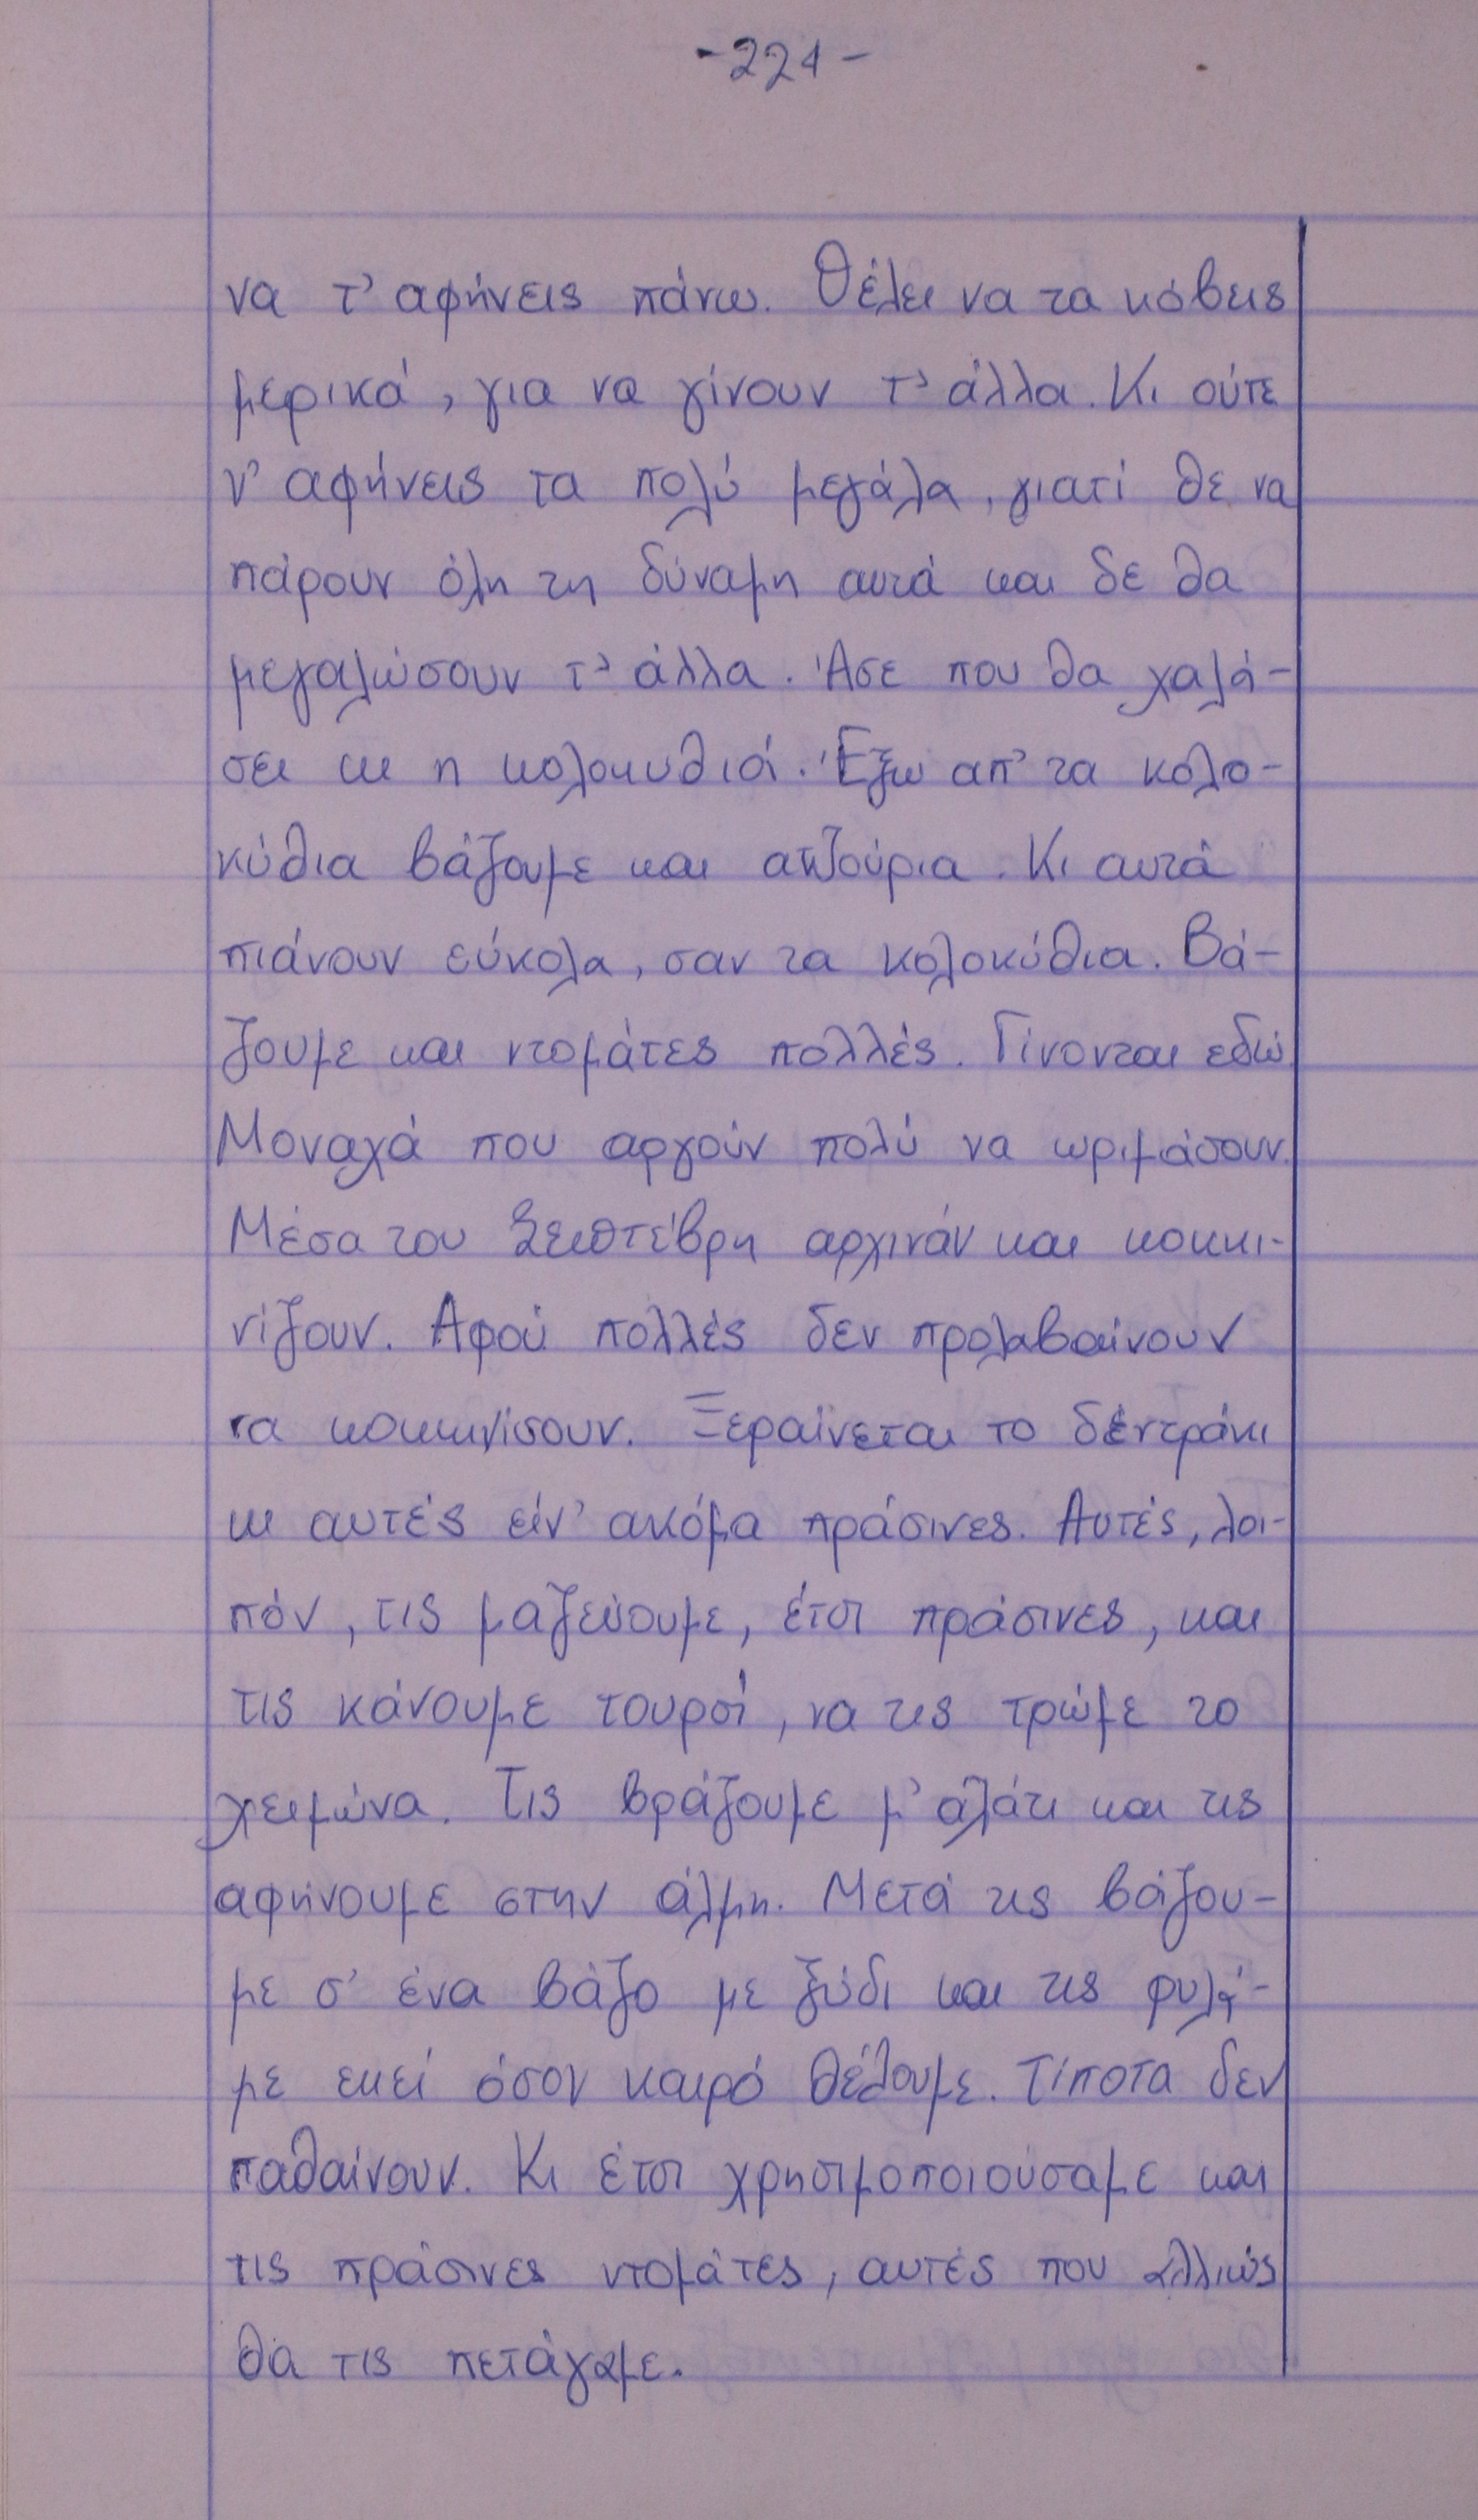 -221-
να τ' αφήνεις πάνω. Θέλει να τα κόβεις
μερικά, για να γίνουν τ' άλλα. Κι ούτε
ν' αφήνεις τα πολύ μεγάλα, γιατί θε να
πάρουν όλη τη δύναμη αυτά και δε θα
μεγαλώσουν τ' άλλα. Άσε που θα χαλά-
σει κι η κολοκυθιά. Έξω απ' τα κολο-
κύθια βάζουμε και ατζούρια. Κι αυτά
πιάνουν εύκολα, σαν τα κολοκύθια. Βά-
ζουμε και ντομάτες πολλές. Γίνονται εδώ.
Μοναχά που αργούν πολύ να ωριμάσουν.
Μέσα του Σεπτέβρη αρχινάν και κοκκι-
νίζουν. Αφού πολλές δεν προλαβαίνουν
να κοκκινίσουν. Ξεραίνεται το δέντράκι
κι αυτές είν' ακόμα πράσινες. Αυτές, λοι-
πόν, τις μαζεύουμε, έτσι πράσινες, και
τις κάνουμε τουρσί, να τις τρώμε το
χειμώνα. Τις βράζουμε μ' αλάτι και τις
αφήνουμε στην άλμη. Μετά τις βάζου-
με σ' ένα βάζο με ξύδι και τις φυλά-
με εκεί όσον καιρό θέλουμε. Τίποτα δεν
παθαίνουν. Κι έτσι χρησιμοποιούσαμε και
τις πράσινες ντομάτες, αυτές που αλλιώς
θα τις πετάγαμε.